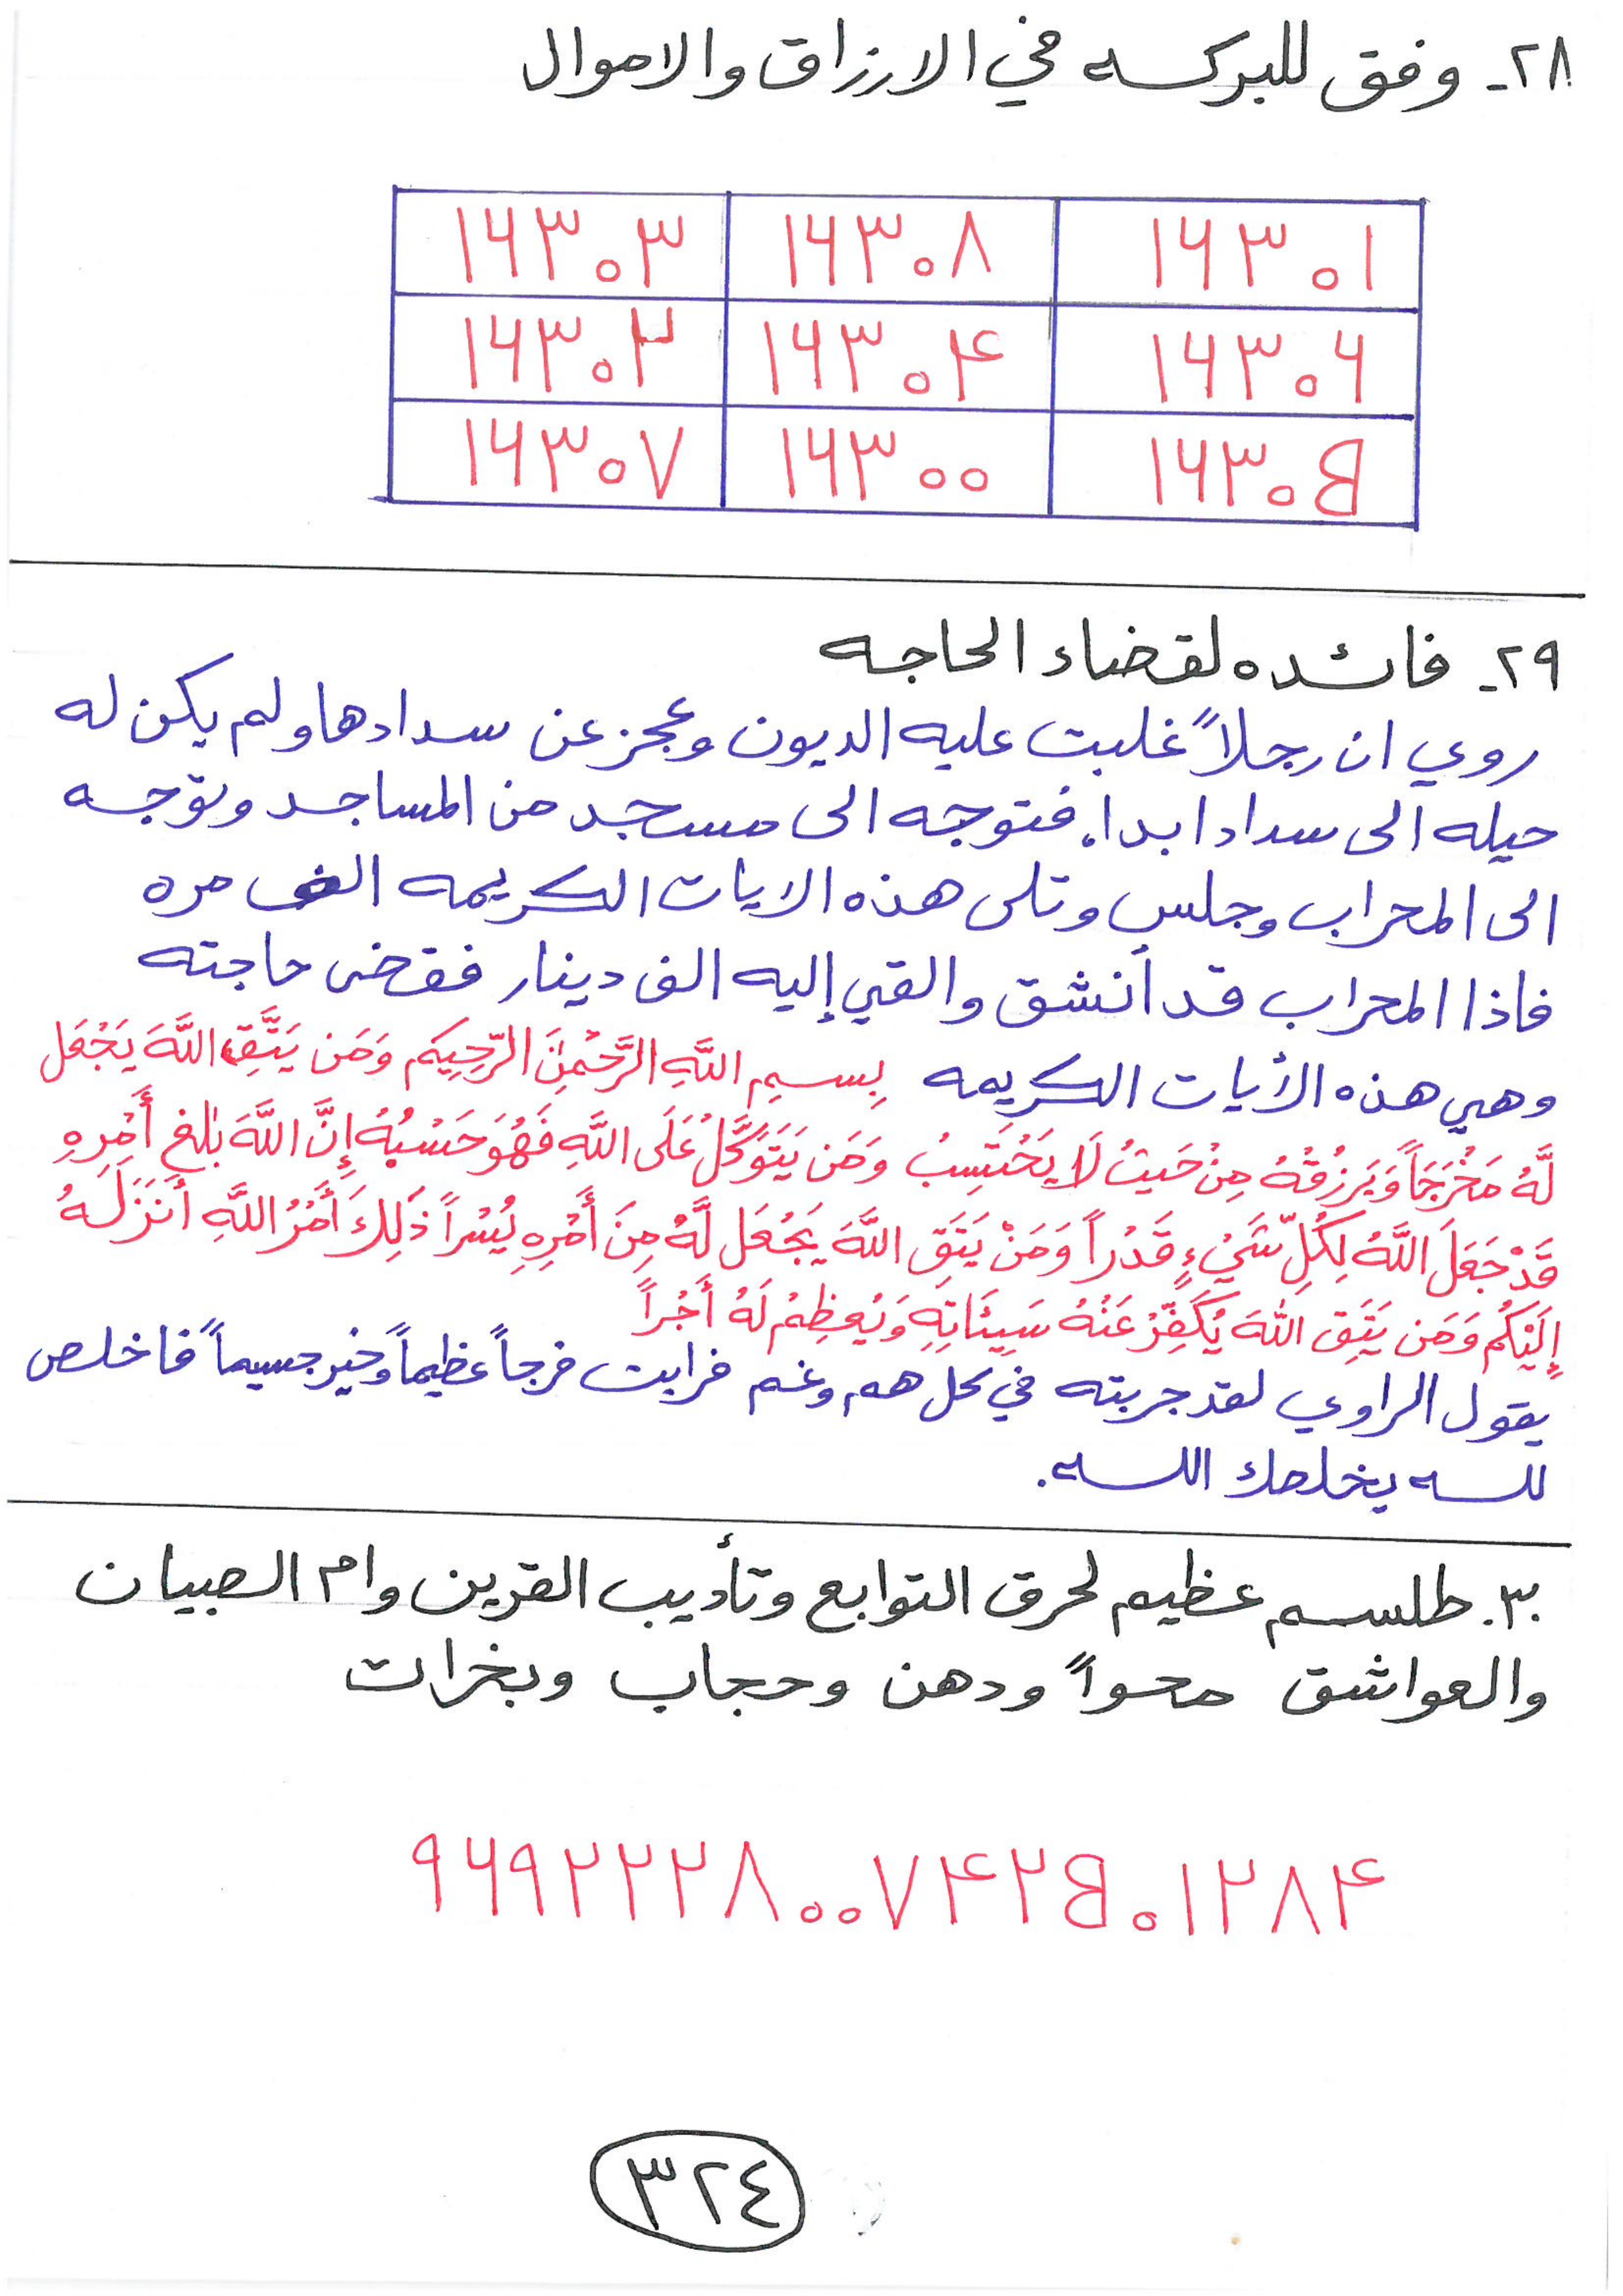 ٢٨- وفق للبركه في الارزاق والاموال
١٦٣٠٣ ١٦٣٠٨ ١٦٣٠١
١٦٣٠٢ ١٦٣٠٤ ١٦٣٠٦
١٦٣٠٧ ١٦٣٠٠ ١٦٣٠٥
٢٩- فائده لقضاء الحاجه
روي ان رجلاً غلبت عليه الديون وعجز عن سدادها ولم يكن له
حيله الى سداد ابدا. فتوجه الى مسجد من المساجد وتوجه
الى المحراب وجلس وتلى هذه الايات الكريمه الف مره
فاذا المحراب قد أنشق والقي إليه الف دينار فقضى حاجته
وهي هذه الأيات الكريمه بِسمِ اللَّهِ الرَّحْمنِ الرَّحِيمِ وَمَن يَتَّقِ اللَّهَ يَجْعَل
لَّهُ مَخْرَجَاً وَيَرزُقْهُ مِنْ حَيثُ لَا يَحْتَسِبُ وَمَن يَتَوَكَّلْ عَلَى اللَّهِ فَهُوَ حَسْبُهُ إِنَّ اللَّهَ بَٰلِغ أَمْرِهِ
قَدْ جَعَلَ اللَّهُ لِكُلِّ شَيْءٍ قَدْراً وَمَنْ يَتَقِ اللَّهَ يَجْعَل لَّهُ مِنَ أَمْرِهِ يُسْراً ذَلِكَ أَمْرُ اللَّهِ أَنَزَلَهُ
إِلَيْكُم وَمَن يَتَقِ اللَّهَ يُكَفِّرْ عَنْهُ سَيِئَاتِهِ وَيُعظِمْ لَهُ أَجْراً
يقول الراوي لقد جربته في كل هم وغم فرايت فرجاً عظيماً وخير جسيماً فاخلص
لله يخلصك الله.
٣٠. طلسم عظيم لحرق التوابع وتأديب القرين وام الصبيان
والعواشق محواً ودهن وحجاب وبخرات
٩٦٩٢٢٢٨٠٠٧٤٢٥٠١٢٨٤
٣٢٤